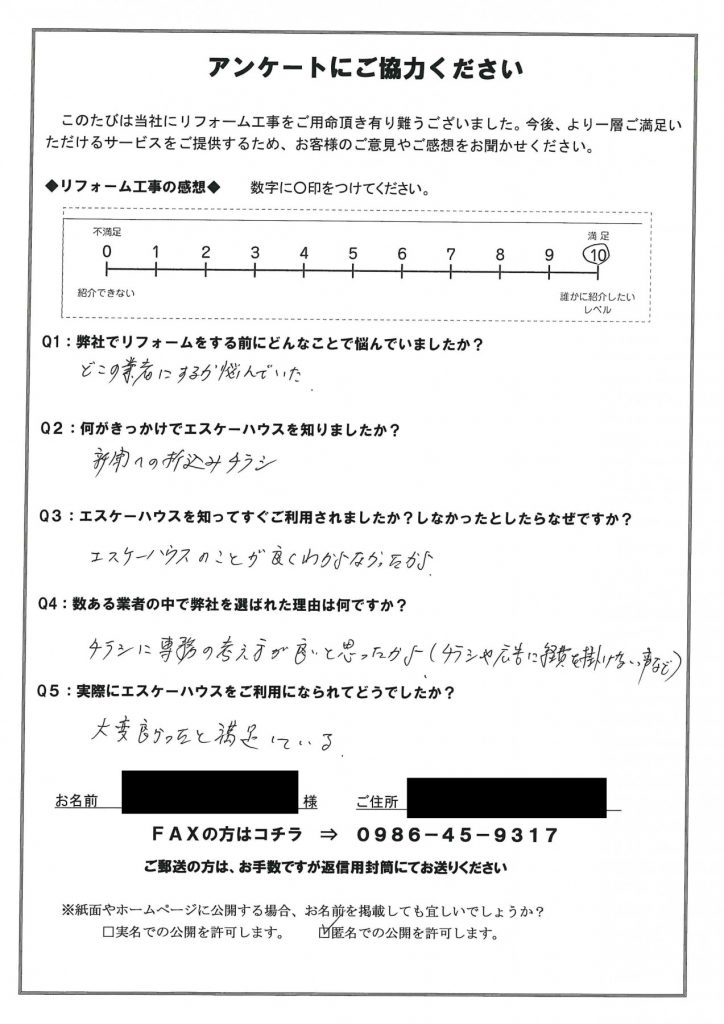 アンケートにご協力ください
このたびは当社にリフォーム工事をご用命頂き有り難うございました。今後、より一層ご満足い
ただけるサービスをご提供するため、お客様のご意見やご感想をお聞かせください。
◆リフォーム工事の感想◆ 数字に〇印をつけてください。
不満足 満足
0 1 2 3 4 5 6 7 8 9 10
紹介できない 誰かに紹介したい
レベル
Q1：弊社でリフォームをする前にどんなことで悩んでいましたか？
どこの業者にするか悩んでいた。
Q2：何がきっかけでエスケーハウスを知りましたか？
新聞への折込みチラシ
Q3：エスケーハウスを知ってすぐご利用されましたか？しなかったとしたらなぜですか？
エスケーハウスのことが良くわからなかったから。
Q4：数ある業者の中で弊社を選ばれた理由は何ですか？
チラシに専務の考え方が良いと思ったから。（チラシや広告に経費を掛けない事など）
Q5：実際にエスケーハウスをご利用になられてどうでしたか？
大変良かったと満足している。
お名前 様 ご住所
ＦＡＸの方はコチラ ⇒ ０９８６－４５－９３１７
ご郵送の方は、お手数ですが返信用封筒にてお送りください
※紙面やホームページに公開する場合、お名前を掲載しても宜しいでしょうか？
□実名での公開を許可します。 ☑匿名での公開を許可します。